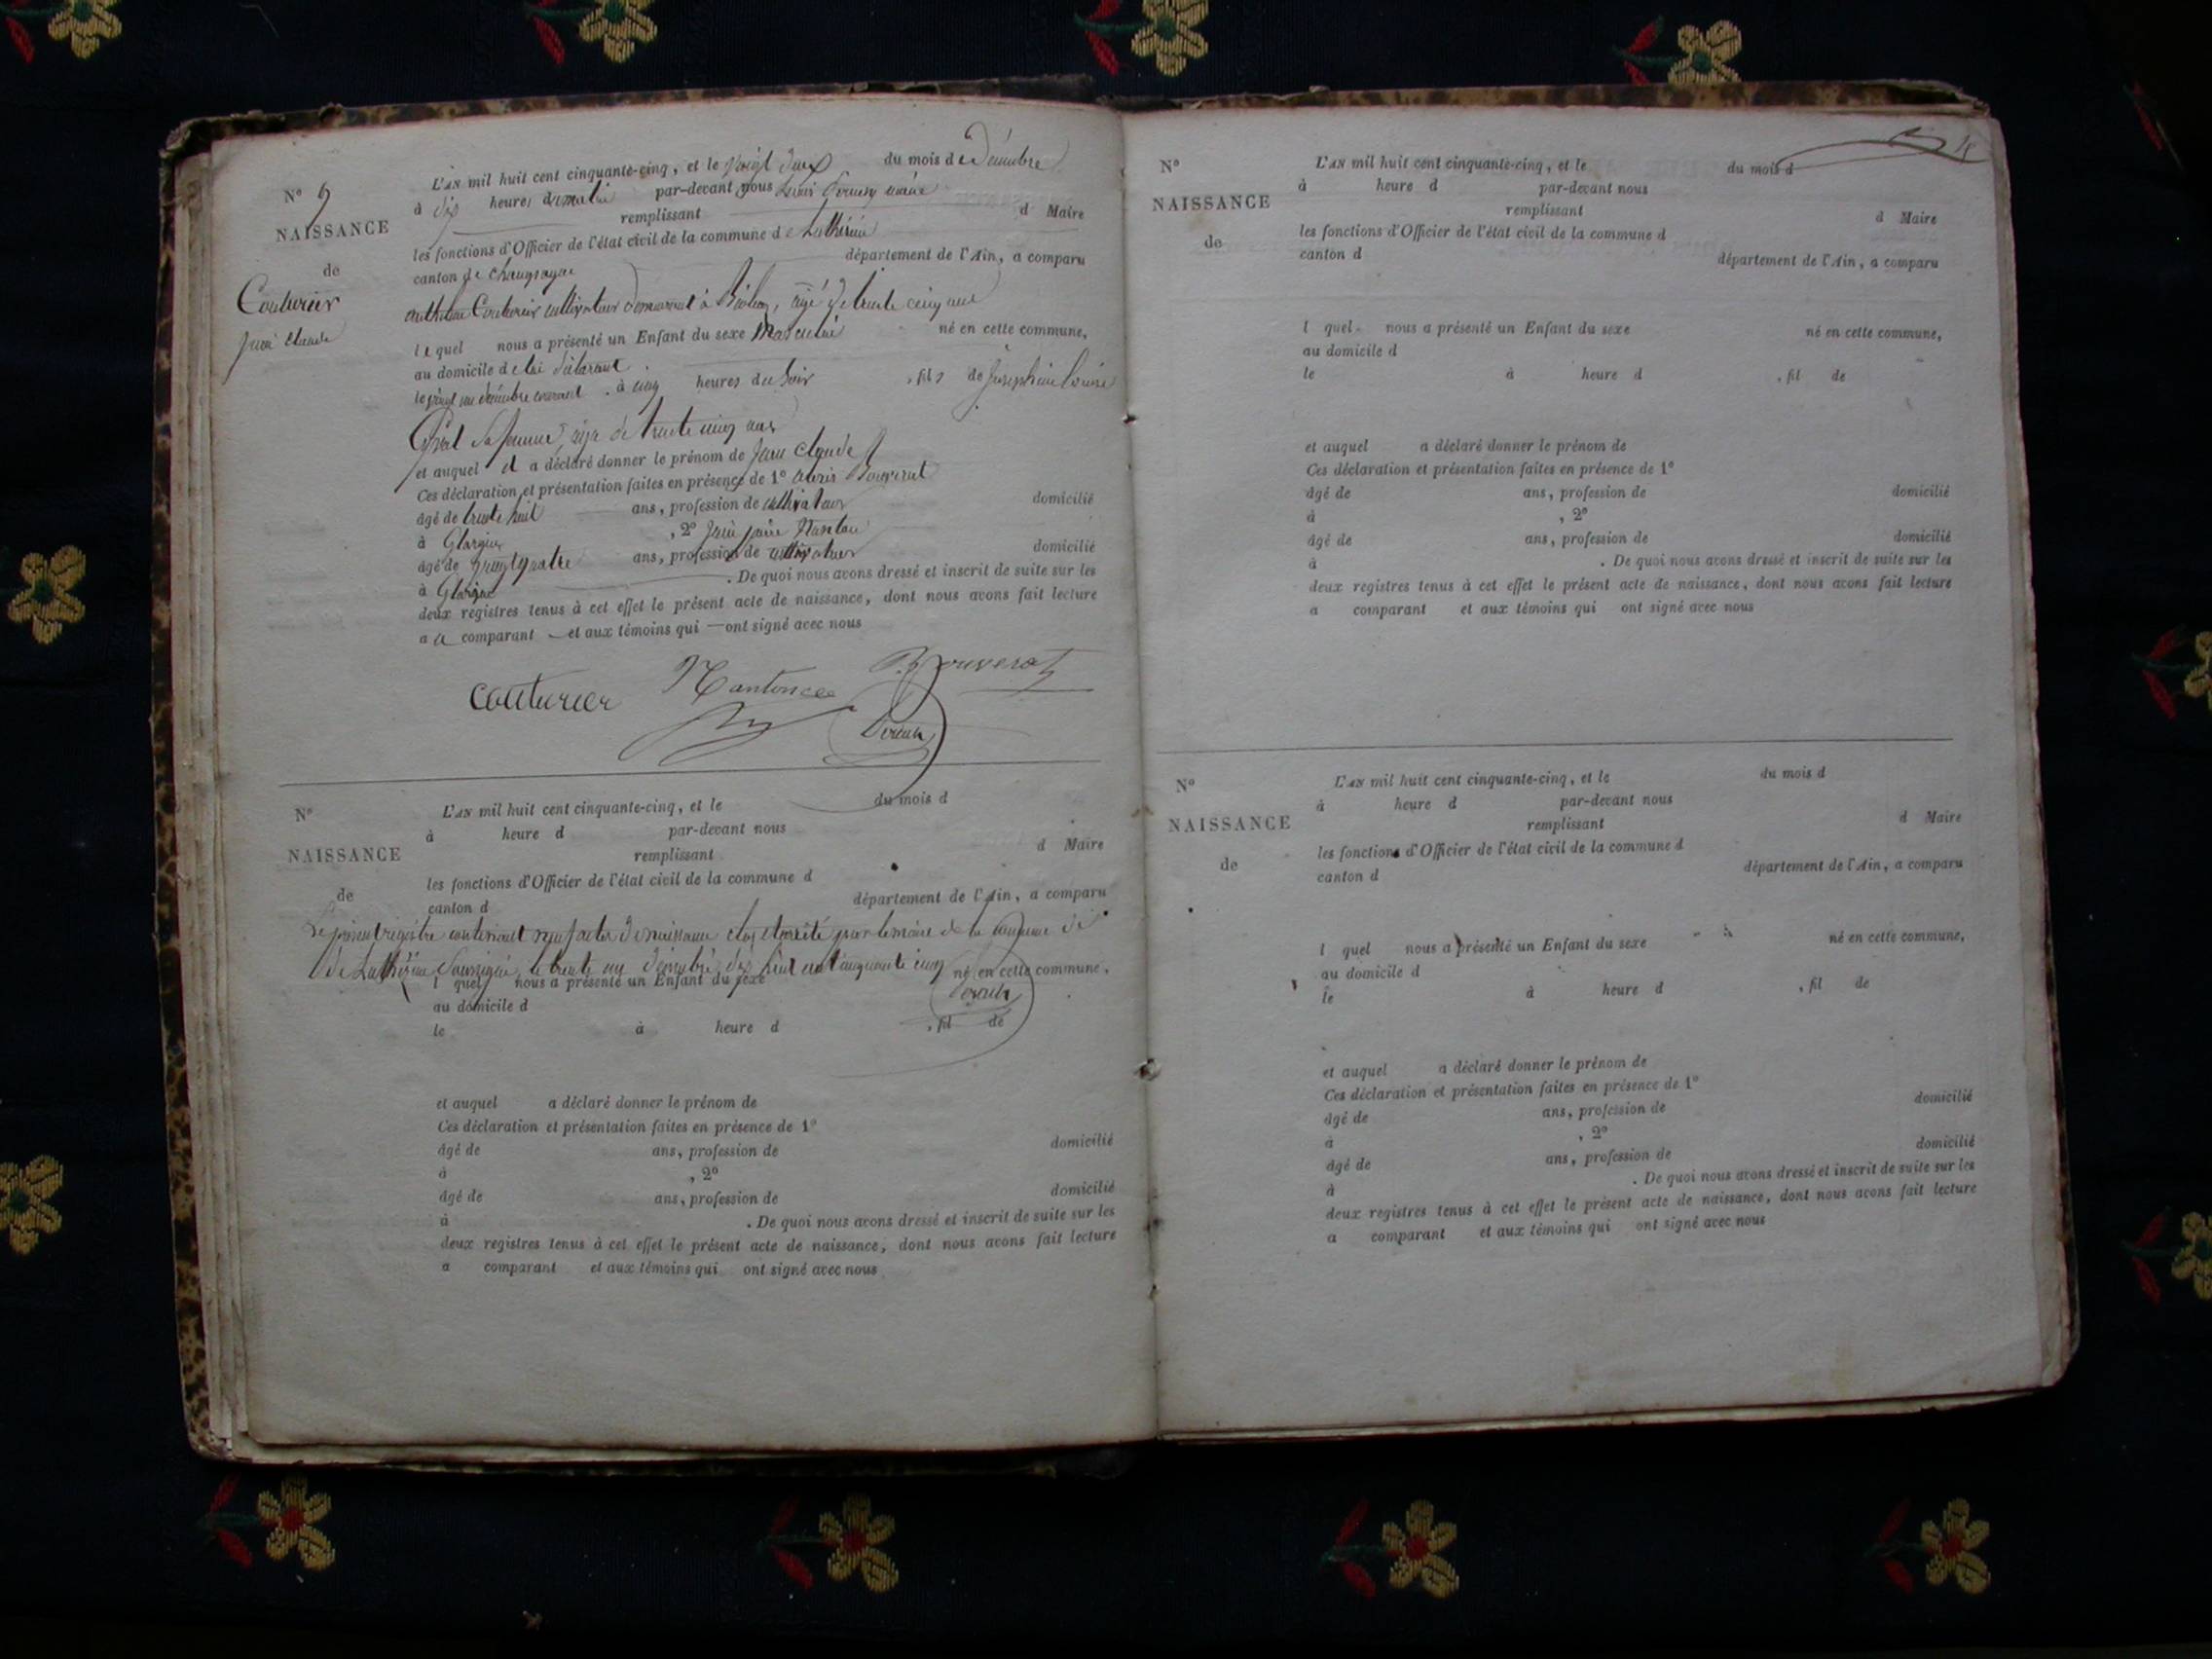 N° 9
NAISSANCE
de
Couturier
Jean Claude
L'AN mil huit cent cinquante-cinq, et le vingt deux du mois de Décembre
à dix heures du matin par-devant nous Louis maire
remplissant d Maire
les fonctions d'Officier de l'état civil de la commune de Luthézieu
canton de Champagne département de l'Ain, a comparu
Anthelme Couturier cultivateur demeurant à , âgé de trente cinq ans
lequel nous a présenté un Enfant du sexe Masculin né en cette commune,
au domicile de lui déclarant
le vingt un décembre courant à cinq heures du soir, fils de Josephine Louise
sa femme, âgée de trente cinq ans
et auquel il a déclaré donner le prénom de Jean Claude
Ces déclaration et présentation faites en présence de 1° Bouverat
âgé de trente huit ans, profession de cultivateur domicilié
à , 2° Jean
âgé de vingt quatre ans, profession de cultivateur domicilié
à . De quoi nous avons dressé et inscrit de suite sur les
deux registres tenus à cet effet le présent acte de naissance, dont nous avons fait lecture
a u comparant et aux témoins qui ont signé avec nous
couturier Bouverat
N°
NAISSANCE
de
L'AN mil huit cent cinquante-cinq, et le du mois d
à heure d par-devant nous
remplissant d Maire
les fonctions d'Officier de l'état civil de la commune d
canton d département de l'Ain, a comparu
Le présent registre contenant neuf actes de naissance clos et arrêté par le maire de la commune de
de Luthézieu soussigné, le trente un décembre dix huit cent cinquante cinq
l quel nous a présenté un Enfant du sexe né en cette commune,
au domicile d
le à heure d , fil de
et auquel a déclaré donner le prénom de
Ces déclaration et présentation faites en présence de 1°
âgé de ans, profession de domicilié
à , 2°
âgé de ans, profession de domicilié
à . De quoi nous avons dressé et inscrit de suite sur les
deux registres tenus à cet effet le présent acte de naissance, dont nous avons fait lecture
a comparant et aux témoins qui ont signé avec nous
4
N°
NAISSANCE
de
L'AN mil huit cent cinquante-cinq, et le du mois d
à heure d par-devant nous
remplissant d Maire
les fonctions d'Officier de l'état civil de la commune d
canton d département de l'Ain, a comparu
l quel nous a présenté un Enfant du sexe né en cette commune,
au domicile d
le à heure d , fil de
et auquel a déclaré donner le prénom de
Ces déclaration et présentation faites en présence de 1°
âgé de ans, profession de domicilié
à , 2°
âgé de ans, profession de domicilié
à . De quoi nous avons dressé et inscrit de suite sur les
deux registres tenus à cet effet le présent acte de naissance, dont nous avons fait lecture
a comparant et aux témoins qui ont signé avec nous
N°
NAISSANCE
de
L'AN mil huit cent cinquante-cinq, et le du mois d
à heure d par-devant nous
remplissant d Maire
les fonctions d'Officier de l'état civil de la commune d
canton d département de l'Ain, a comparu
l quel nous a présenté un Enfant du sexe né en cette commune,
au domicile d
le à heure d , fil de
et auquel a déclaré donner le prénom de
Ces déclaration et présentation faites en présence de 1°
âgé de ans, profession de domicilié
à , 2°
âgé de ans, profession de domicilié
à . De quoi nous avons dressé et inscrit de suite sur les
deux registres tenus à cet effet le présent acte de naissance, dont nous avons fait lecture
a comparant et aux témoins qui ont signé avec nous